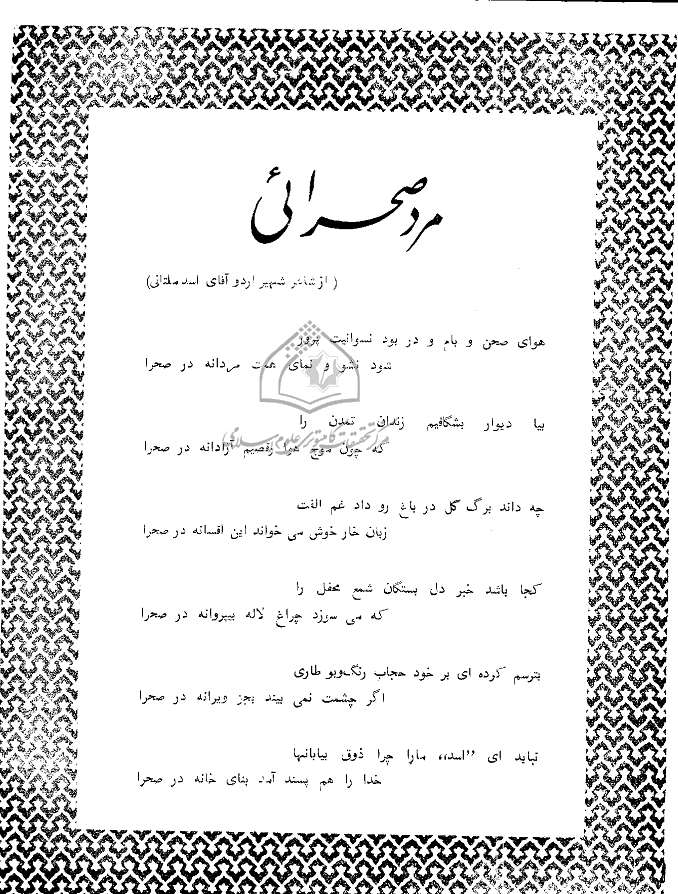 مرد صحرائی
( از شاعر شهیر اردو آقای اسد ملتانی)
هوای صحن و بام و در بود نسوانیت پرور
شود نشو و نمای همت مردانه در صحرا
بیا دیوار بشگافیم زندان تمدن را
که چون موج هوا رقصیم آزادانه در صحرا
مرکز تحقیقات کامپیوتری علوم اسلامی
چه داند برگ گل در باغ رو داد غم الفت
زبان خار خوش می خواند این افسانه در صحرا
کجا باشد خبر دل بستگان شمع محفل را
که می سوزد چراغ لاله بیپروانه در صحرا
بترسم کرده ای بر خود حجاب رنگ‌وبو طاری
اگر چشمت نمی بیند بجز ویرانه در صحرا
نباید ای ”اسد،، مارا چرا ذوق بیابانها
خدا را هم پسند آمد بنای خانه در صحرا